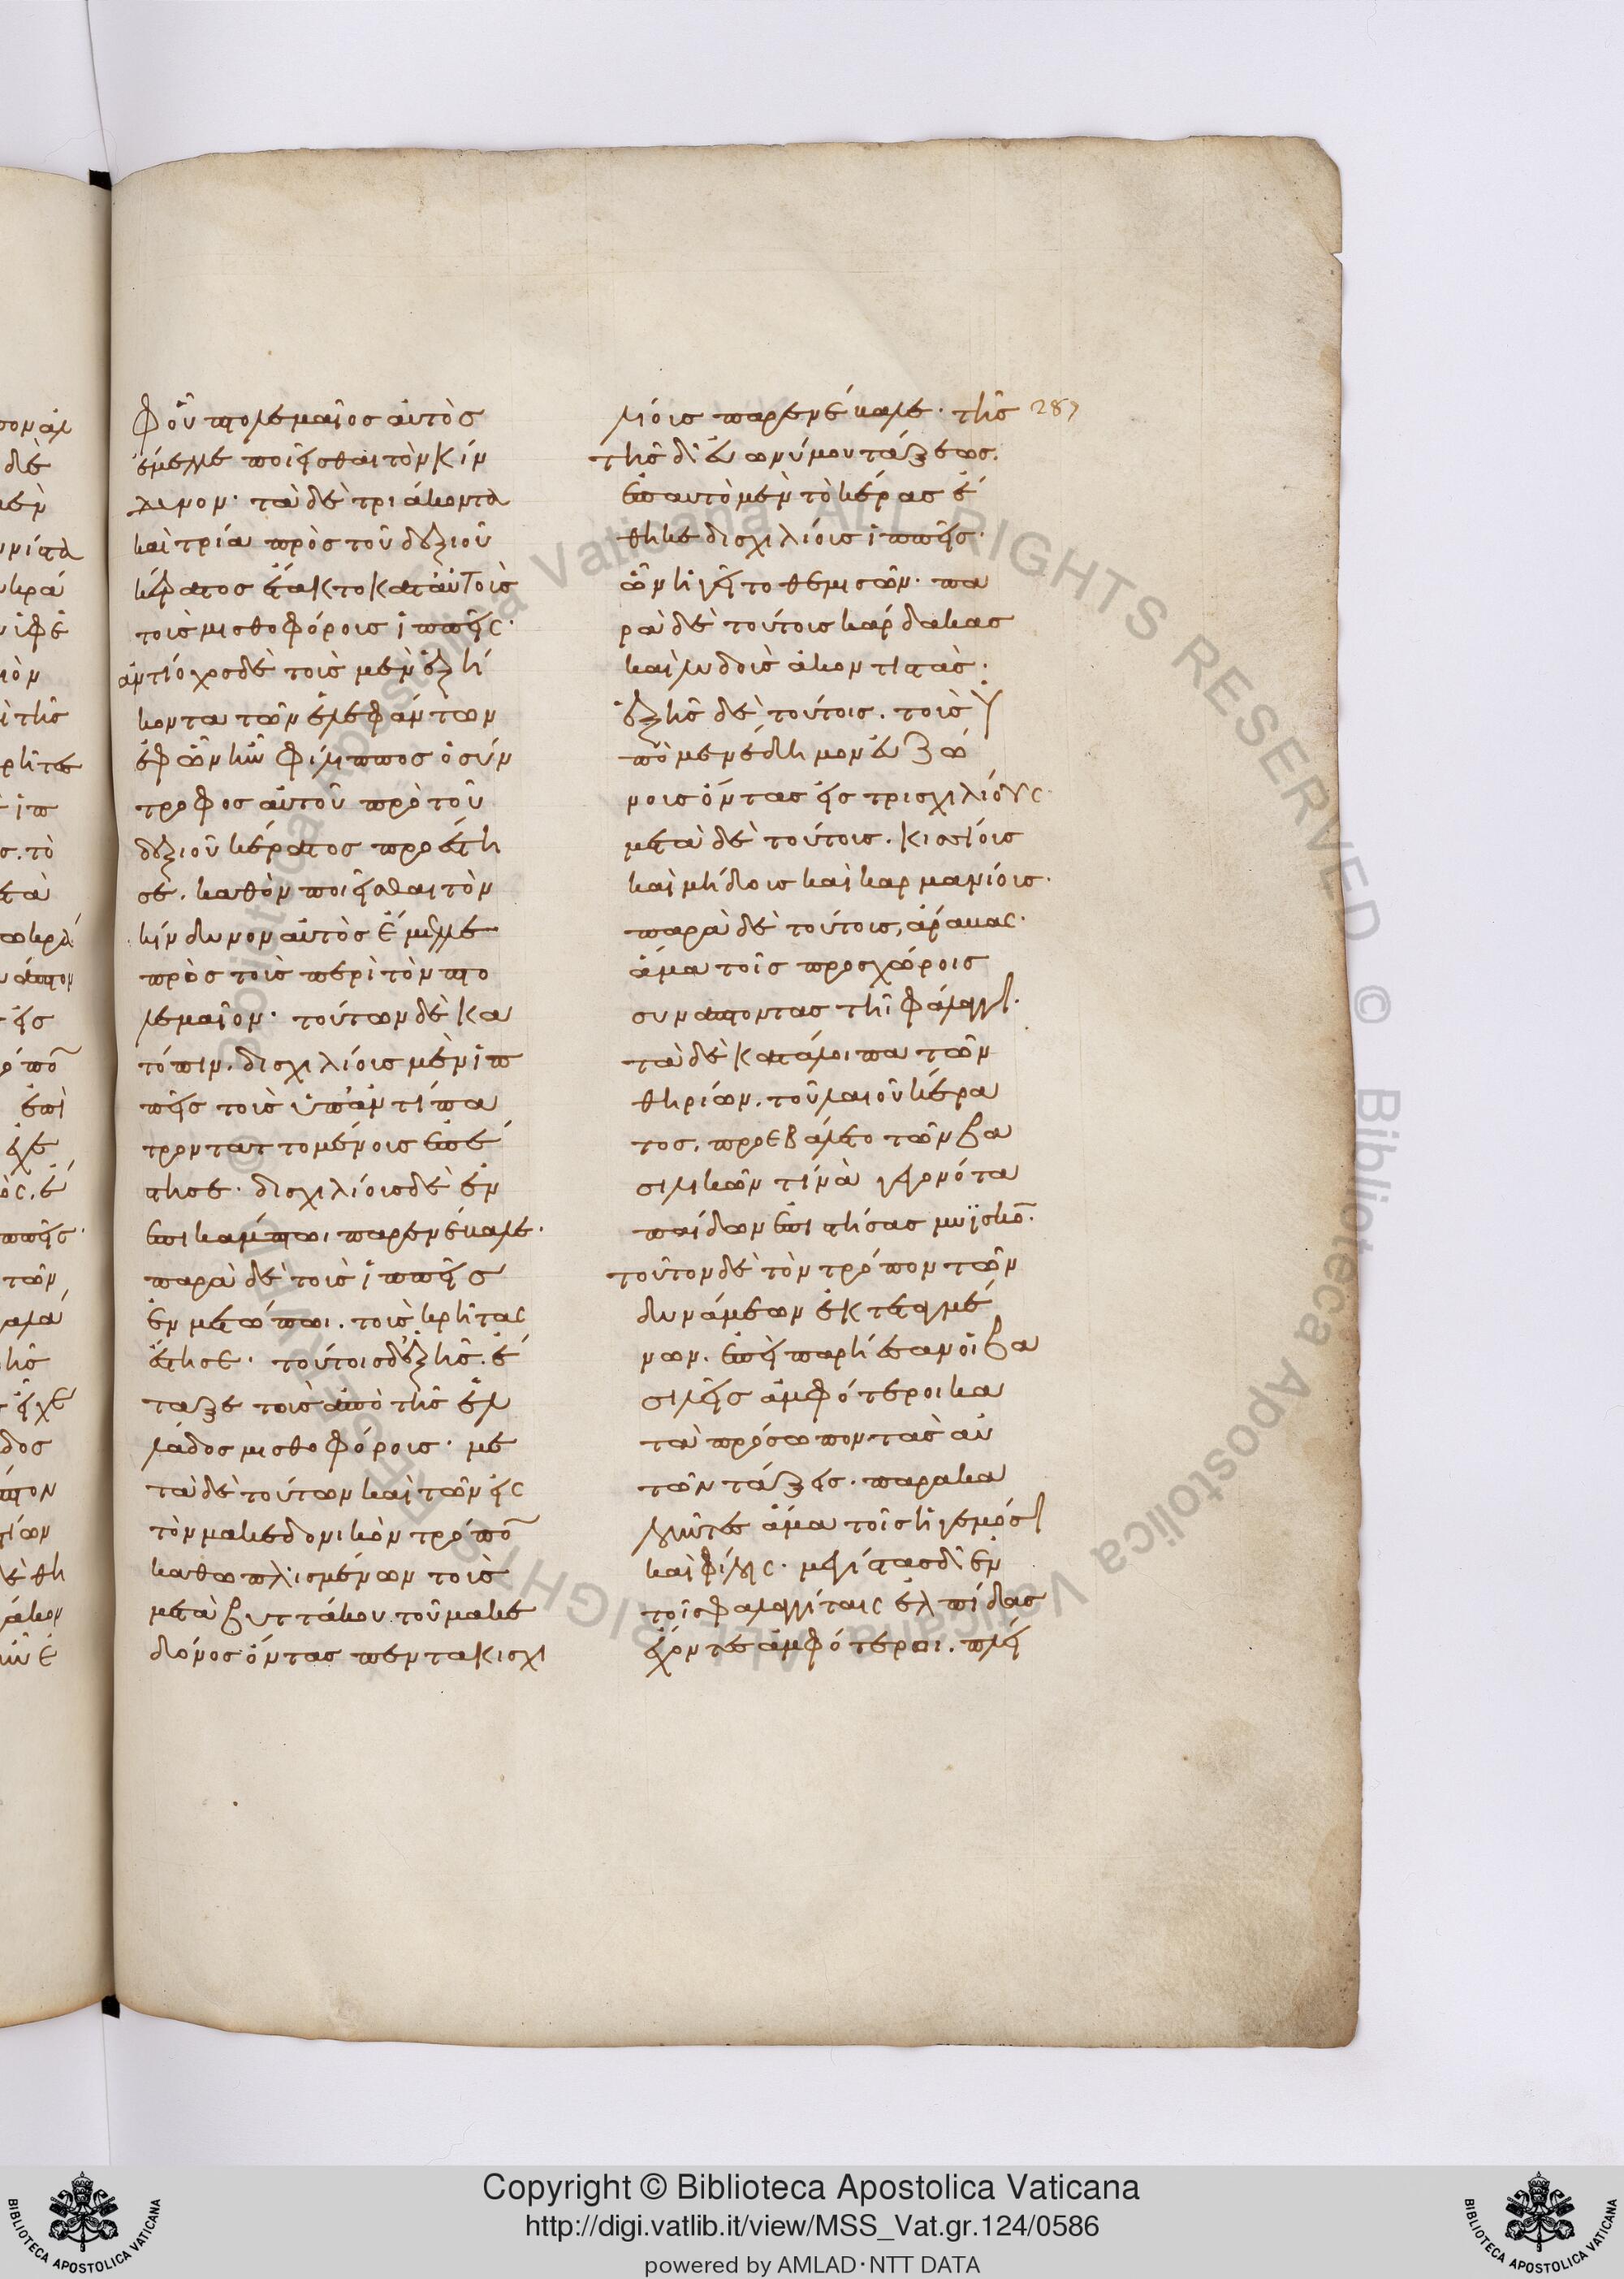 φ' οὗ πτολεμαῖος αὐτὸς
ἔμελλε ποιεῖσθαι τὸν κίν
δυνον· τὰ δὲ τριάκοντα
καὶ τρία πρὸς τοῦ δεξιοῦ
κέρατος ἔτακτο κατ' αὐτοὺς
τοὺς μισθοφόρους ἱππεῖς·
ἀντίοχος δὲ τοὺς μὲν ἑξή
κοντα τῶν ἐλεφάντων
ἐφ' ὧν ἦν φίλιππος ὁ σύν
τροφος αὐτοῦ πρὸ τοῦ
δεξιοῦ κέρατος προέστη
σε· καθ' ὃν ποιεῖσθαι τὸν
κίνδυνον αὐτὸς ἔμελλε
πρὸς τοὺς περὶ τὸν πτο
λεμαῖον· τούτων δὲ κα
τόπιν. δισχιλίους μὲν ἱπ
πεῖς τοὺς ὑπ' ἀντίπα
τρον ταττομένους ἐπέ
στησε· δισχιλίους δὲ ἐν
ἐπικαμπίωι παρενέβαλε·
παρὰ δὲ τοὺς ἱππεῖς
ἐν μετώπωι. τοὺς κρῆτας
ἔστησε· τούτοις δ' ἑξῆς. ἔ
ταξε τοὺς ἀπὸ τῆς ἑλ
λάδος μισθοφόρους· με
τὰ δὲ τούτων καὶ τῶν εἰς
τὸν μακεδονικὸν τρόπον
καθωπλισμένων τοὺς
μετὰ βυττάκου τοῦ μακε
δόνος ὄντας πεντακισχι
λίους παρενέβαλε· τῆς 287
τῆς δ' εὐωνύμου τάξεως.
ἐπ' αὐτὸ μὲν τὸ κέρας ἔ
θηκε δισχιλίους ἱππεῖς·
ὧν ἡγεῖτο θεμισων· πα
ρὰ δὲ τούτοις κάρδακας
καὶ λυδοὺς ἀκοντιστὰς·
ἑξῆς δὲ τούτοις. τοὺς ὑ
πὸ μενέδημον εὐζώ
νους ὄντας εἰς τρισχιλίους·
μετὰ δὲ τούτους. κισσίους
καὶ μήδους καὶ καρμανίους·
παρὰ δὲ τούτοις, ἄραβας·
ἅμα τοῖς προσχώροις
συνάπτοντας τῆι φάλαγγι·
τὰ δὲ κατάλοιπα τῶν
θηρίων. τοῦ λαιοῦ κέρα
τος. προεβάλετο τῶν βα
σιλικῶν τίνὰ γεγονότα
παίδων ἐπιστήσας μυΐσκον·
τοῦτον δὲ τὸν τρόπον τῶν
δυνάμεων ἐκτεταγμέ
νων. ἐπῄ παρήεσαν οἱ βα
σιλεῖς ἀμφότεροι κα
τὰ πρόσωπον τὰς αὑ
τῶν τάξεις. παρακα
λοῦντες ἅμα τοῖς ἡγεμόσι
καὶ φίλοις· μεγίστας δ' ἐν
τοῖς φαλαγγίταις ἐλπίδας
ἔχοντες ἀμφότεροι. πλεί
Copyright © Biblioteca Apostolica Vaticana
http://digi.vatlib.it/view/MSS_Vat.gr.124/0586
powered by AMLAD·NTT DATA